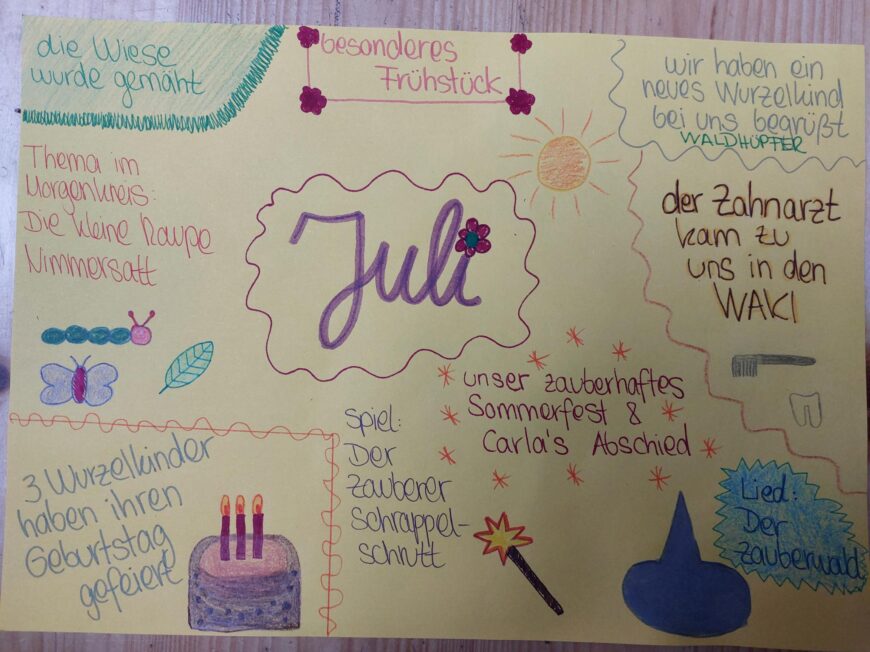 die Wiese
wurde gemäht
besonderes
Frühstück
wir haben ein
neues Wurzelkind
bei uns begrüßt
WALDHÜPFER
Thema im
Morgenkreis:
Die kleine Raupe
Nimmersatt
Juli
der Zahnarzt
kam zu
uns in den
WAKI
unser zauberhaftes
Sommerfest &
Carla's Abschied
Spiel:
Der
Zauberer
Schrappel-
schrutt
3 Wurzelkinder
haben ihren
Geburtstag
gefeiert
Lied:
Der
Zauberwald